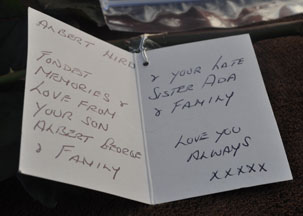 ALBERT HIRD
FONDEST
MEMORIES &
LOVE FROM
YOUR SON
ALBERT GEORGE
& FAMILY
& YOUR LATE
SISTER ADA
& FAMILY
LOVE YOU
ALWAYS
xxxxx